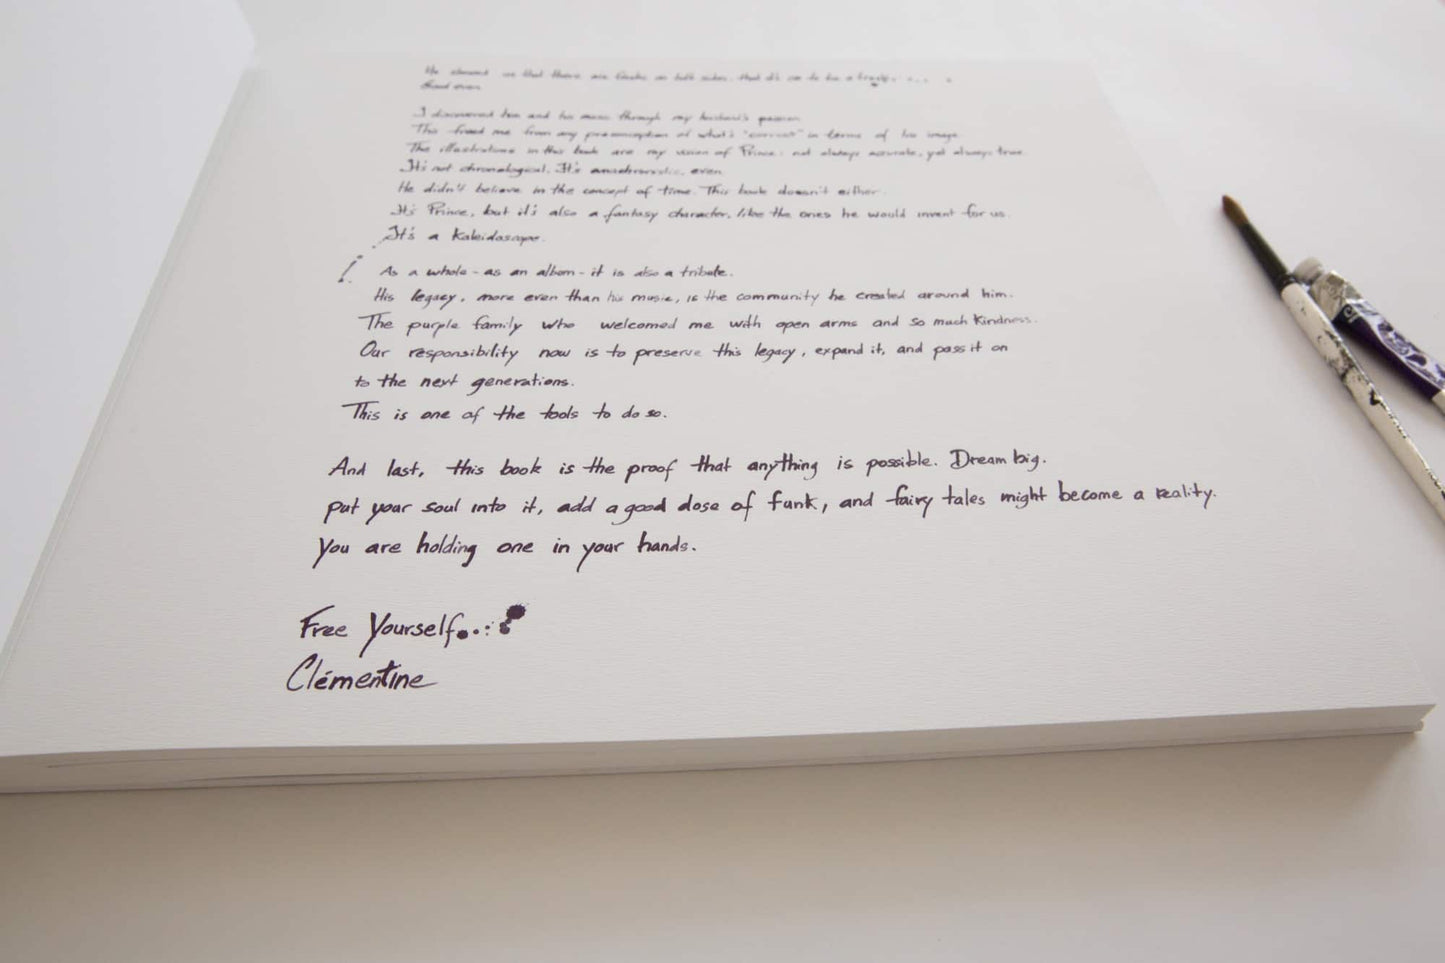 He showed us that there are freaks on both sides, that it's ok to be a freak
Good even.
I discovered him and his music through my husband's passion.
This freed me from any preconception of what's "correct" in terms of his image.
The illustrations in this book are my vision of Prince: not always accurate, yet always true.
It's not chronological. It's anachronistic, even.
He didn't believe in the concept of time. This book doesn't either.
It's Prince, but it's also a fantasy character, like the ones he would invent for us.
It's a Kaleidoscope.
As a whole - as an album - it is also a tribute.
His legacy, more even than his music, is the community he created around him.
The purple family who welcomed me with open arms and so much Kindness.
Our responsibility now is to preserve this legacy, expand it, and pass it on
to the next generations.
This is one of the tools to do so.
And last, this book is the proof that anything is possible. Dream big.
put your soul into it, add a good dose of funk, and fairy tales might become a reality.
You are holding one in your hands.
Free Yourself...
Clémentine